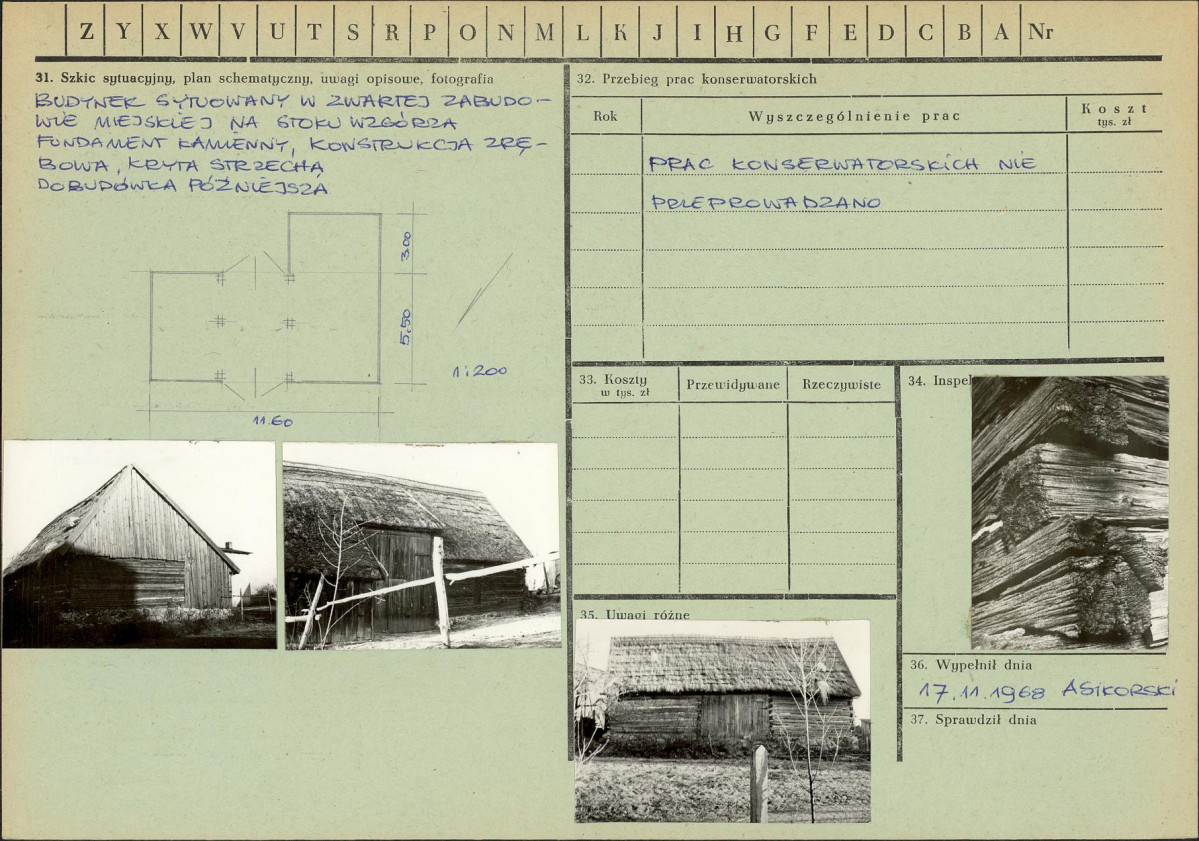 Z Y X W V U T S R P O N M L K J I H G F E D C B A Nr
31. Szkic sytuacyjny, plan schematyczny, uwagi opisowe, fotografia
BUDYNEK SYTUOWANY W ZWARTEJ ZABUDO-
WIE MIEJSKIEJ NA STOKU WZGÓRZA
FUNDAMENT KAMIENNY, KONSTRUKCJA ZRĘ-
BOWA, KRYTA STRZECHĄ
DOBUDÓWKA PÓŹNIEJSZA
3.00
5.50
1:200
11.60
32. Przebieg prac konserwatorskich
Rok
Wyszczególnienie prac
Koszt
tys. zł
PRAC KONSERWATORSKICH NIE
PRZEPROWADZANO
33. Koszty
w tys. zł
Przewidywane
Rzeczywiste
34. Inspek
35. Uwagi różne
36. Wypełnił dnia
17.11.1968 A SIKORSKI
37. Sprawdził dnia